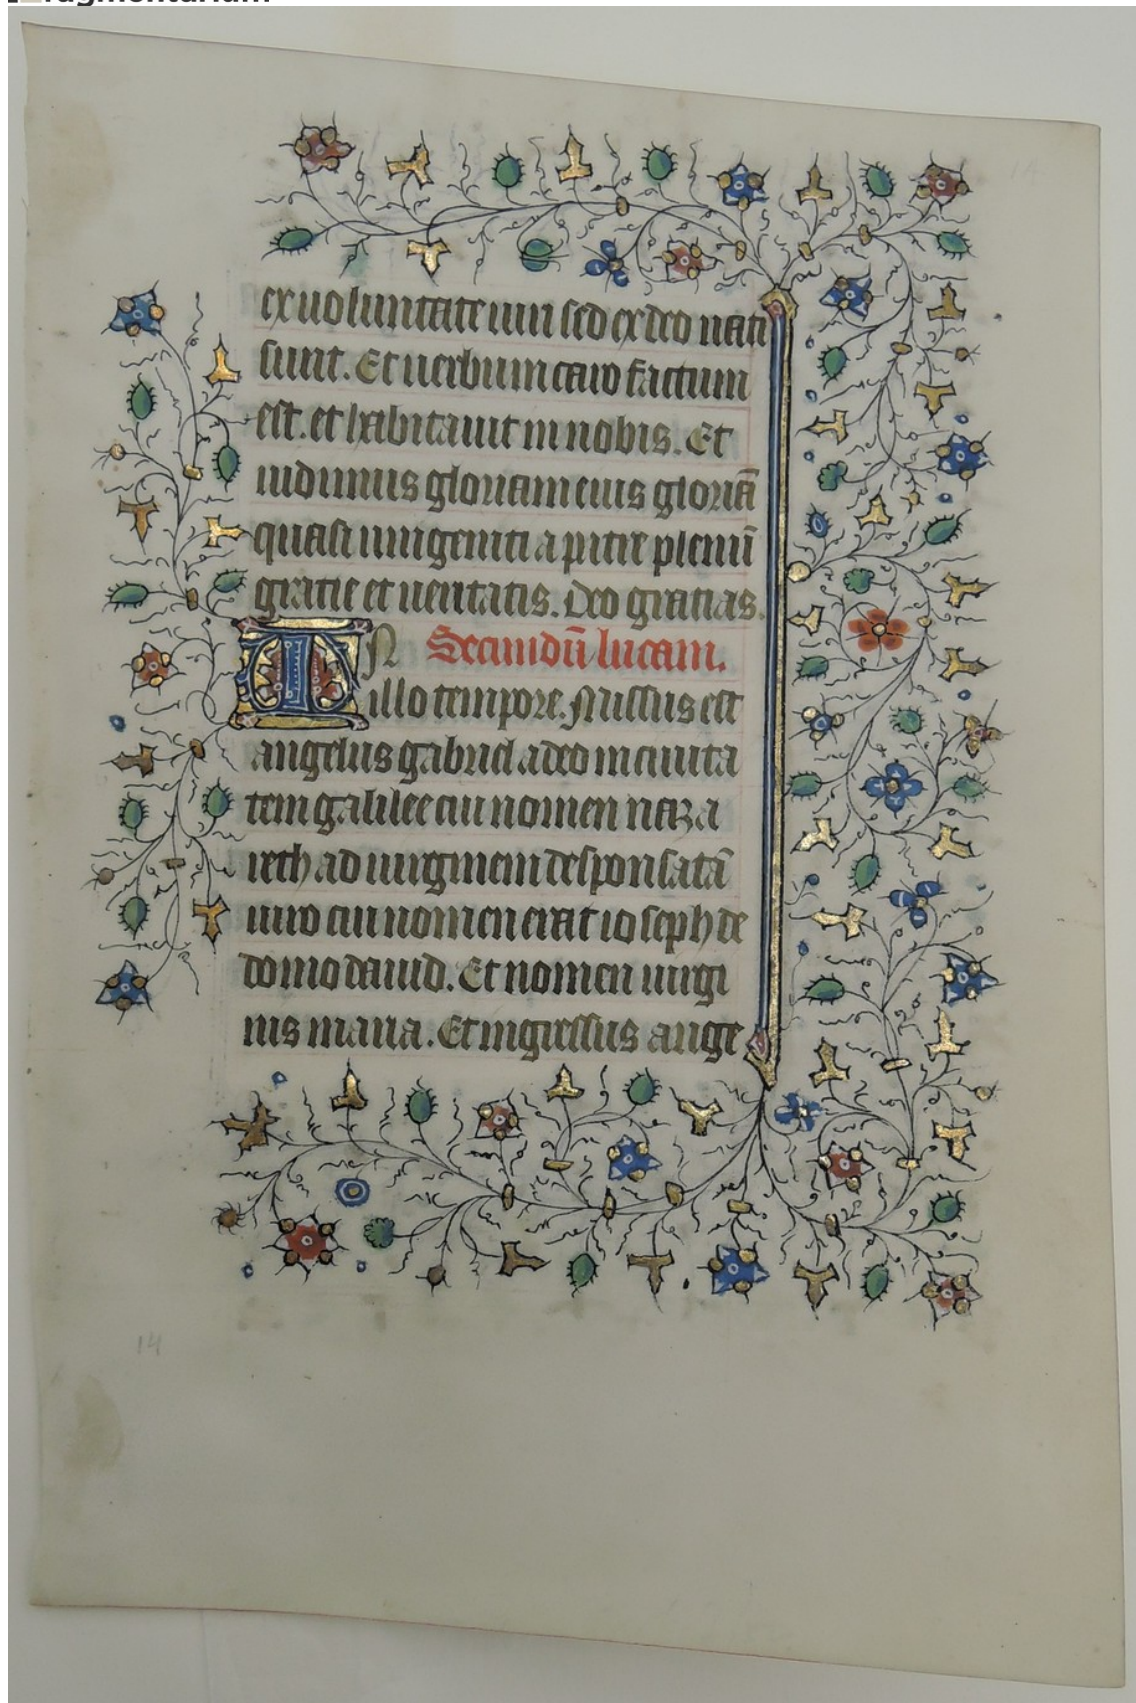 ex uoluntate uiri sed ex deo nati
sunt. Et uerbum caro factum
est. et habitauit in nobis. Et
uidimus gloriam eius gloriā
quasi unigeniti a patre plenū
gratie et ueritatis. Deo gratias.
IN Secundū lucam.
illo tempore. Missus est
angelus gabriel a deo in ciuita
tem galilee cui nomen naza
reth ad uirginem desponsatā
uiro cui nomen erat ioseph de
domo dauid. Et nomen uirgi
nis maria. Et ingressus ange
14
14